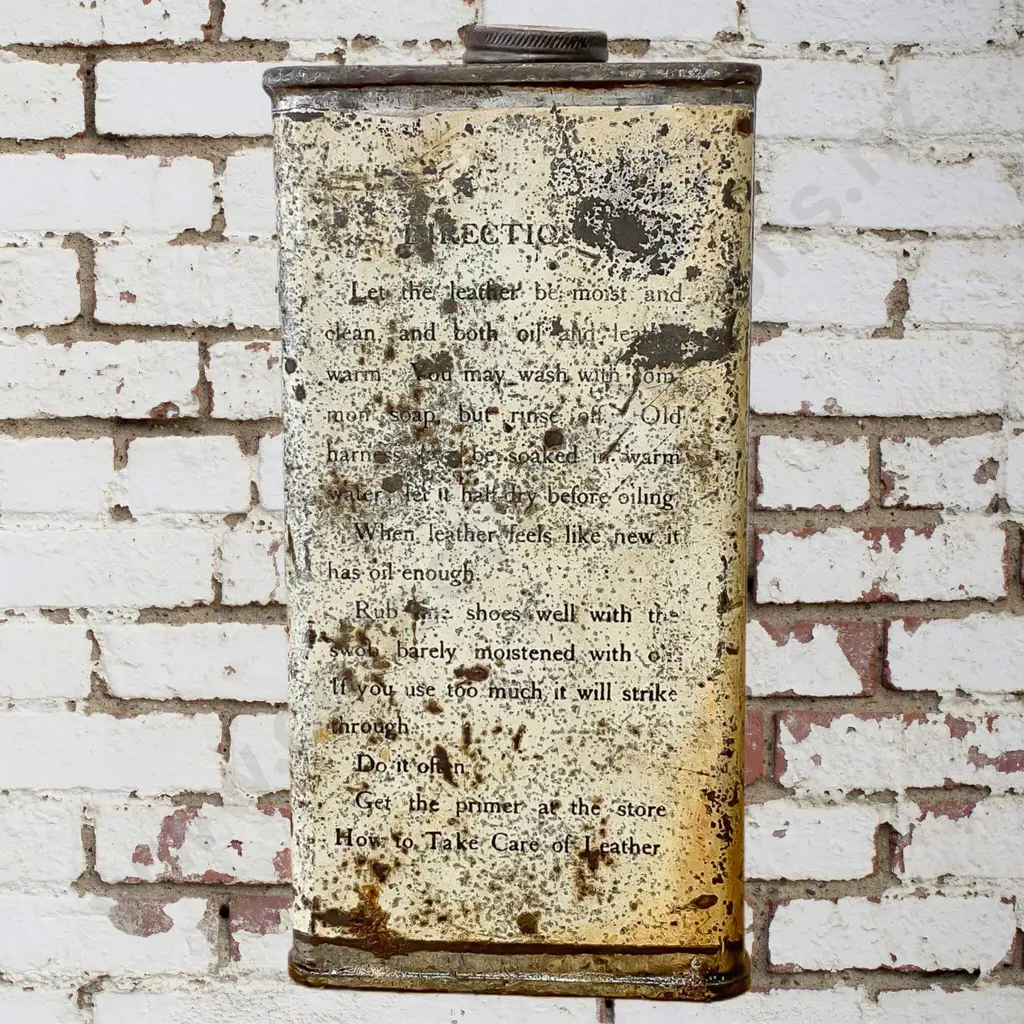 DIRECTIONS
Let the leather be moist and
clean and both oil and leather
warm You may wash with com
mon soap, but rinse off Old
harness be soaked in warm
water let it half dry before oiling
When leather feels like new it
has oil enough
Rub the shoes well with the
swob barely moistened with oil
If you use too much it will strike
through
Do it often
Get the primer at the store
How to Take Care of Leather